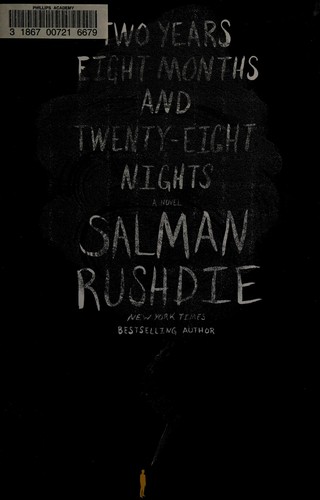 PHILLIPS ACADEMY
3 1867 00721 6679
TWO YEARS
EIGHT MONTHS
AND
TWENTY-EIGHT
NIGHTS
A NOVEL
SALMAN
RUSHDIE
NEW YORK TIMES
BESTSELLING AUTHOR